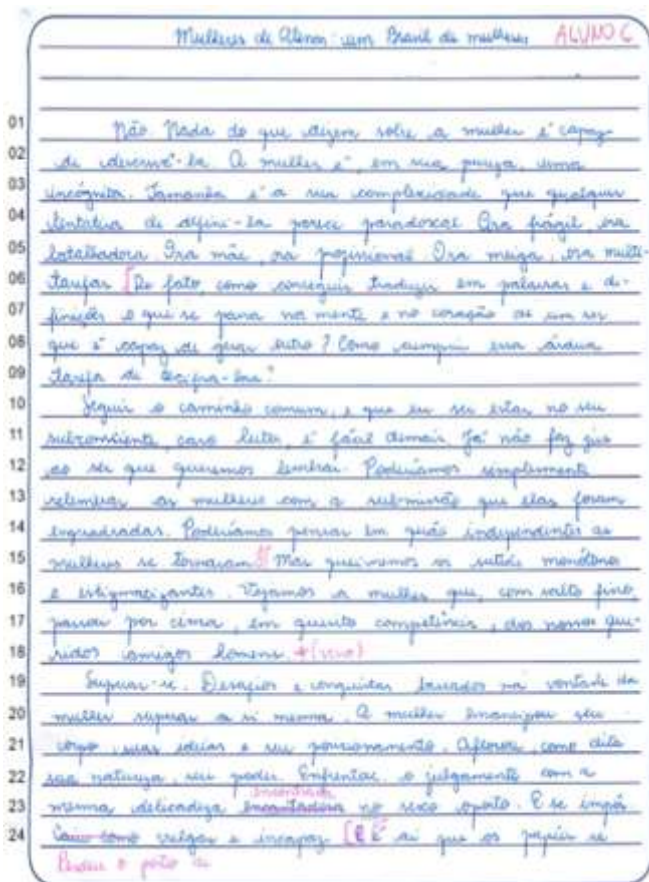 Mulheres de Atenas: um Brasil de mulheres ALUNO C
01 Não. Nada do que dizem sobre a mulher é capaz
02 de descrevê-la. A mulher é, em sua pureza, uma
03 incógnita. Tamanha é a sua complexidade que qualquer
04 tentativa de defini-la parece paradoxal. Ora frágil, ora
05 batalhadora. Ora mãe, ora profissional. Ora meiga, ora multi-
06 tarefas. [De fato, como conseguir traduzir em palavras e de-
07 finições o que se passa na mente e no coração de um ser
08 que é capaz de gerar outro? Como cumprir essa árdua
09 tarefa de decifra-las?
10 Seguir o caminho comum, e que eu sei estar no seu
11 subconsciente, caro leitor, é fácil demais. Já não faz jus
12 ao ser que queremos lembrar. Poderíamos simplesmente
13 relembrar as mulheres com a submissão que elas foram
14 enquadradas. Poderíamos pensar em quão independentes as
15 mulheres se tornaram. Mas queimemos os sutiãs monótonos
16 e estigmatizantes. Vejamos a mulher que, com salto fino,
17 passou por cima, em quesito competência, dos nossos que-
18 ridos amigos homens. *(verso)
19 Superar-se. Desafios e conquistas baseados na vontade da
20 mulher superar a si mesma. A mulher emancipou seu
21 corpo, suas ideias e seu posicionamento. Aflorou, como dita
22 sua natureza, seu poder. Enfrentar o julgamento com a
23 mesma delicadeza encontrada no sexo oposto. E se impôs
24 como vulgar e incapaz. [E é aí que os papéis se
Perdeu o posto de